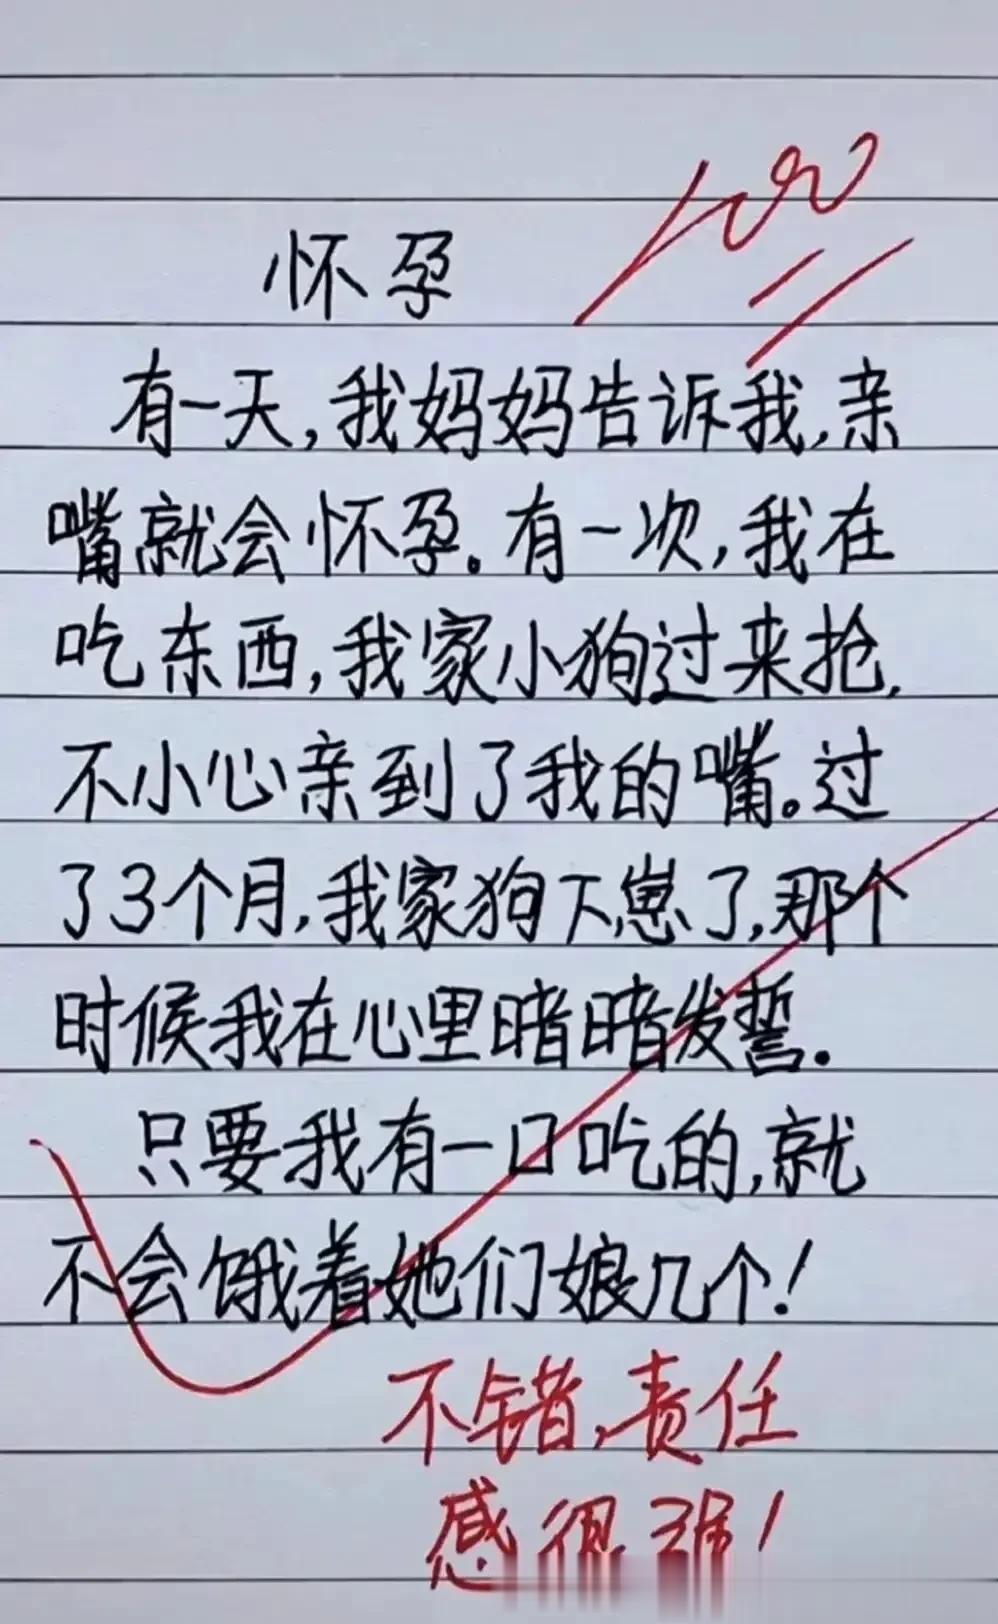 100
怀孕
有一天,我妈妈告诉我,亲
嘴就会怀孕。有一次,我在
吃东西,我家小狗过来抢,
不小心亲到了我的嘴。过
了3个月,我家狗下崽了,那个
时候我在心里暗暗发誓。
只要我有一口吃的,就
不会饿着她们娘几个!
不错,责任
感很强!